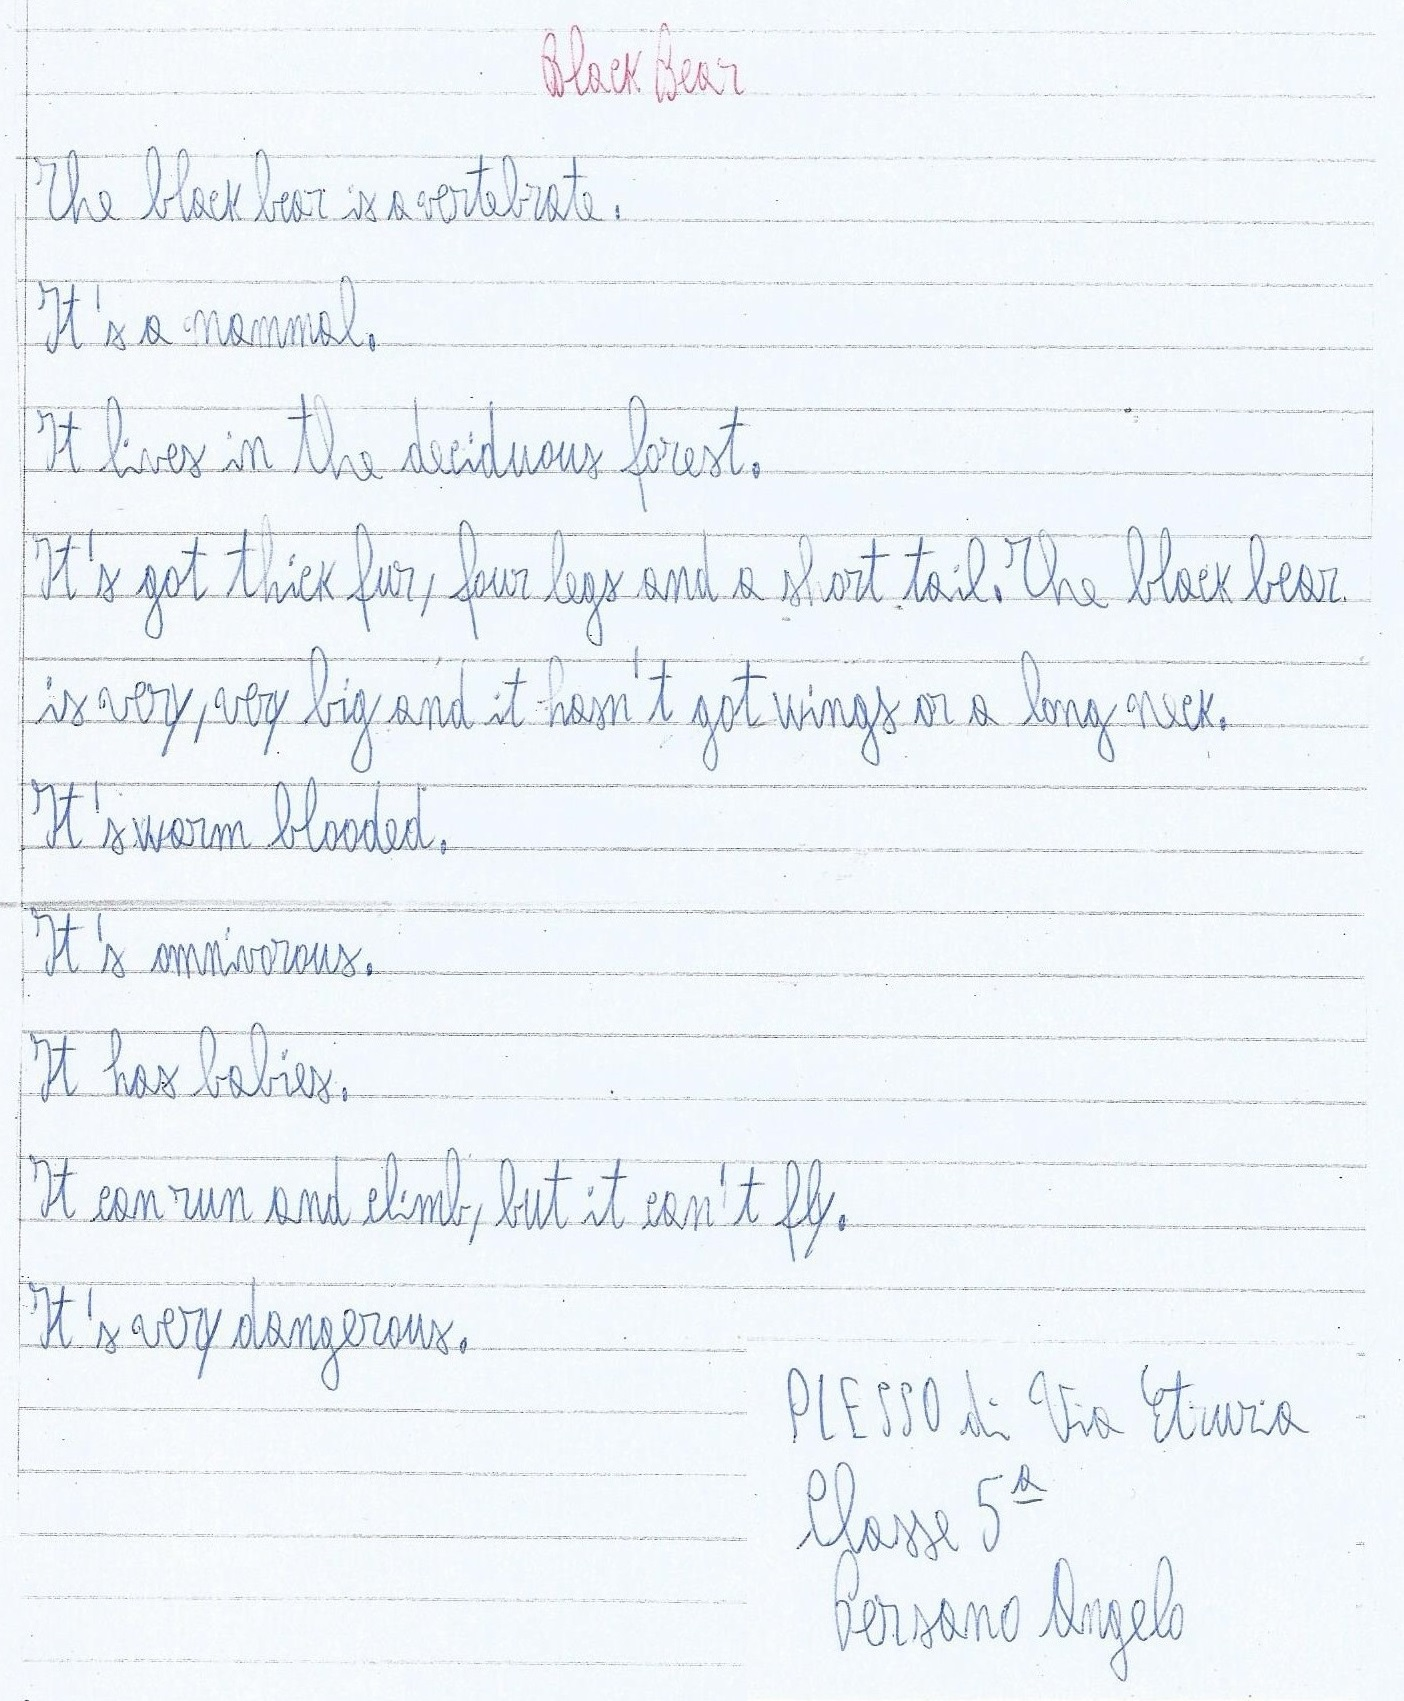 Black Bear
The black bear is a vertebrate.
It's a mammal.
It lives in the deciduous forest.
It's got thick fur, four legs and a short tail. The black bear
is very, very big and it hasn't got wings or a long neck.
It's warm blooded.
It's omnivorous.
It has babies.
It can run and climb, but it can't fly.
It's very dangerous.
PLESSO di Via Etruria
Classe 5ª
Persano Angelo